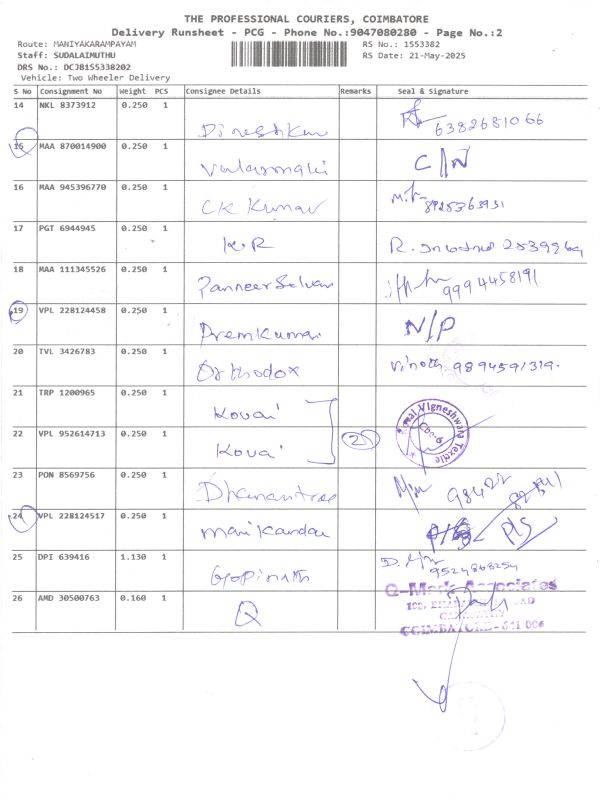 THE PROFESSIONAL COURIERS, COIMBATORE
Delivery Runsheet - PCG - Phone No.:9047080280 - Page No.:2
Route: MANIYAKARAMPAYAM RS No.: 1553382
Staff: SUDALAIMUTHU RS Date: 21-May-2025
DRS No.: DCJB155338202
Vehicle: Two Wheeler Delivery
S No Consignment No Weight PCS Consignee Details Remarks Seal & Signature
14 NKL 8373912 0.250 1 Dineshkum 6382681066
15 MAA 870014900 0.250 1 Valarmahi C/N
16 MAA 945396770 0.250 1 CK Kumar 8925363931
17 PGT 6944945 0.250 1 K.R R.
18 MAA 111345526 0.250 1 Panneer Selvam 9994458191
19 VPL 228124458 0.250 1 Premkumar N/P
20 TVL 3426783 0.250 1 Orthodox Vinoth 9894591319.
21 TRP 1200965 0.250 1 Kovai
22 VPL 952614713 0.250 1 Kovai 2 Vigneshwara Textile
23 PON 8569756 0.250 1 98422
24 VPL 228124517 0.250 1 Manikandan P/S
25 DPI 639416 1.130 1 Gopinath D. 9524868254
26 AMD 30500763 0.160 1 Q Q-Mark Associates
COIMBATORE - 641 006